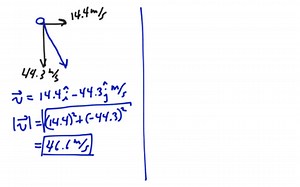 14.4 m/s
44.3 m/s
v⃗ = 14.4î - 44.3ĵ m/s
|v⃗| = √(14.4)² + (-44.3)²
= 46.6 m/s